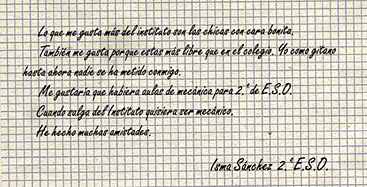 Lo que me gusta más del instituto son las chicas con cara bonita.
También me gusta porque estas más libre que en el colegio. Yo como gitano
hasta ahora nadie se ha metido conmigo.
Me gustaría que hubiera aulas de mecánica para 2.º de E.S.O.
Cuando salga del Instituto quisiera ser mecánico.
He hecho muchas amistades.
Isma Sánchez 2.º E.S.O.